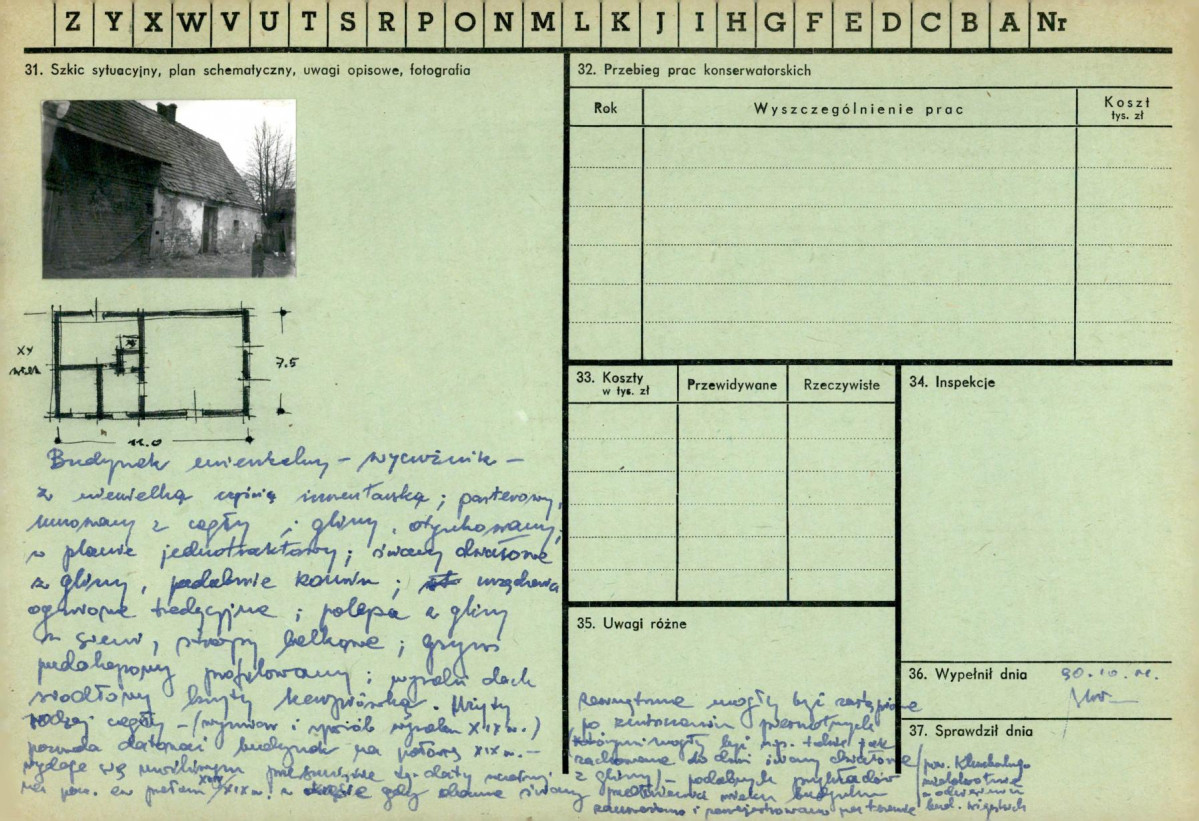 Z Y X W V U T S R P O N M L K J I H G F E D C B A Nr
31. Szkic sytuacyjny, plan schematyczny, uwagi opisowe, fotografia
7.5
11.0
Budynek mieszkalny – wycużnik –
z niewielką częścią inwentarską ; parterowy,
murowany z cegły i gliny, otynkowany,
w planie jednotraktowy ; ściany działowe
z gliny, podobnie komin ; urządzenia
ogniowe tradycyjne ; polepa z gliny
w sieni, stropy belkowe ; gzyms
podokapowy profilowany ; wysoki dach
siodłowy kryty karpiówką. Użyty
rodzaj cegły – (wymiar i sposób wyrobu XIX w.)
pozwala datować budynek na połowę XIX w. –
wydaje się możliwym przesunięcie tej daty
na XVIII/XIX w. gdy obecne ściany
32. Przebieg prac konserwatorskich
Rok
Wyszczególnienie prac
Koszt
tys. zł
33. Koszty
w tys. zł
Przewidywane
Rzeczywiste
34. Inspekcje
35. Uwagi różne
zewnętrzne mogły być zastąpione
po pierwotnych
(którymi mogły być np. takie jak
zachowane do dni ściany działowe
z gliny) – podobnych przykładów
budynku
zauważono i zarejestrowano na terenie
pow. Kluczborskiego
bud. wiejskich
36. Wypełnił dnia
37. Sprawdził dnia